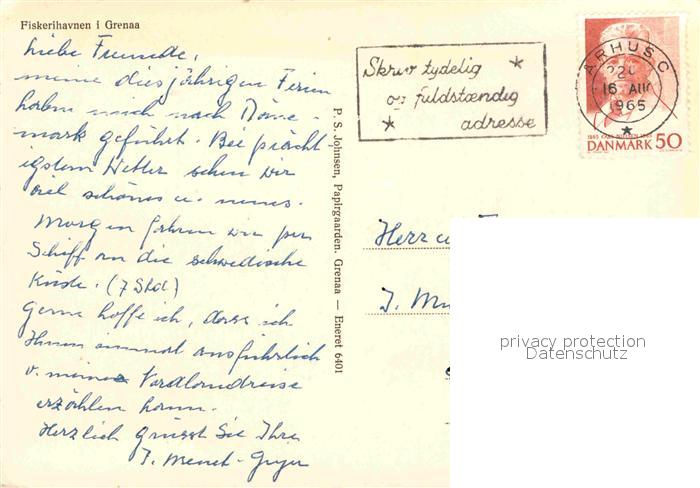 Fiskerihavnen i Grenaa
Liebe Freunde,
meine diesjährigen Ferien
haben mich nach Däne-
mark geführt. Bei prächt
igstem Wetter sehen wir
viel schönes u. neues.
Morgen fahren wir per
Schiff an die schwedische
Küste. (7 Std)
Gerne hoffe ich, dass ich
Ihnen einmal ausführlich
v. meiner Nordlandreise
erzählen kann.
Herzlich grüsst Sie Ihre
J. Menet-
P. S. Johnsen, Papirgaarden. Grenaa — Eneret 6401
Skriv tydelig
og fuldstændig
adresse
ÅRHUS C
16 AUG
1965
DANMARK 50
Herr u.
J.
privacy protection
Datenschutz